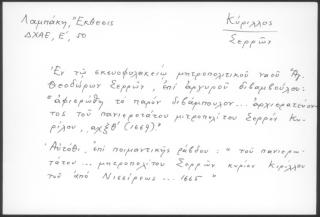 Λαμπάκη, Ἔκθεσις
ΔΧΑΕ, Ε', 50
Κύριλλος
Σερρῶν
Ἐν τῷ σκευοφυλακείῳ μητροπολιτικοῦ ναοῦ Ἁγ.
Θεοδώρων Σερρῶν, ἐπί ἀργυροῦ διβαμβούλου:
"ἀφιερώθη τό παρόν διβάμπουλον... ἀρχιερατεύον-
τος τοῦ πανιερωτάτου μητροπολίτου Σερρῶν Κυ-
ρίλου, αχξθ' (1669)."
Αὐτόθι, ἐπί ποιμαντικῆς ράβδου: "τοῦ πανιερω-
τάτου ... μητροπολίτου Σερρῶν κυρίου Κυρίλλου
τοῦ ἀπό Νισσίρεως ... 1665"